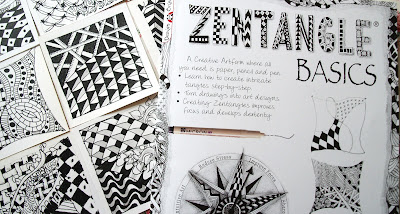 ZENTANGLE®
BASICS
A Creative Artform where all
you need is paper, pencil and pen
• Learn how to create intricate
tangles step-by-step
• Turn drawings into art designs
• Creating Zentangles improves
focus and develops dexterity